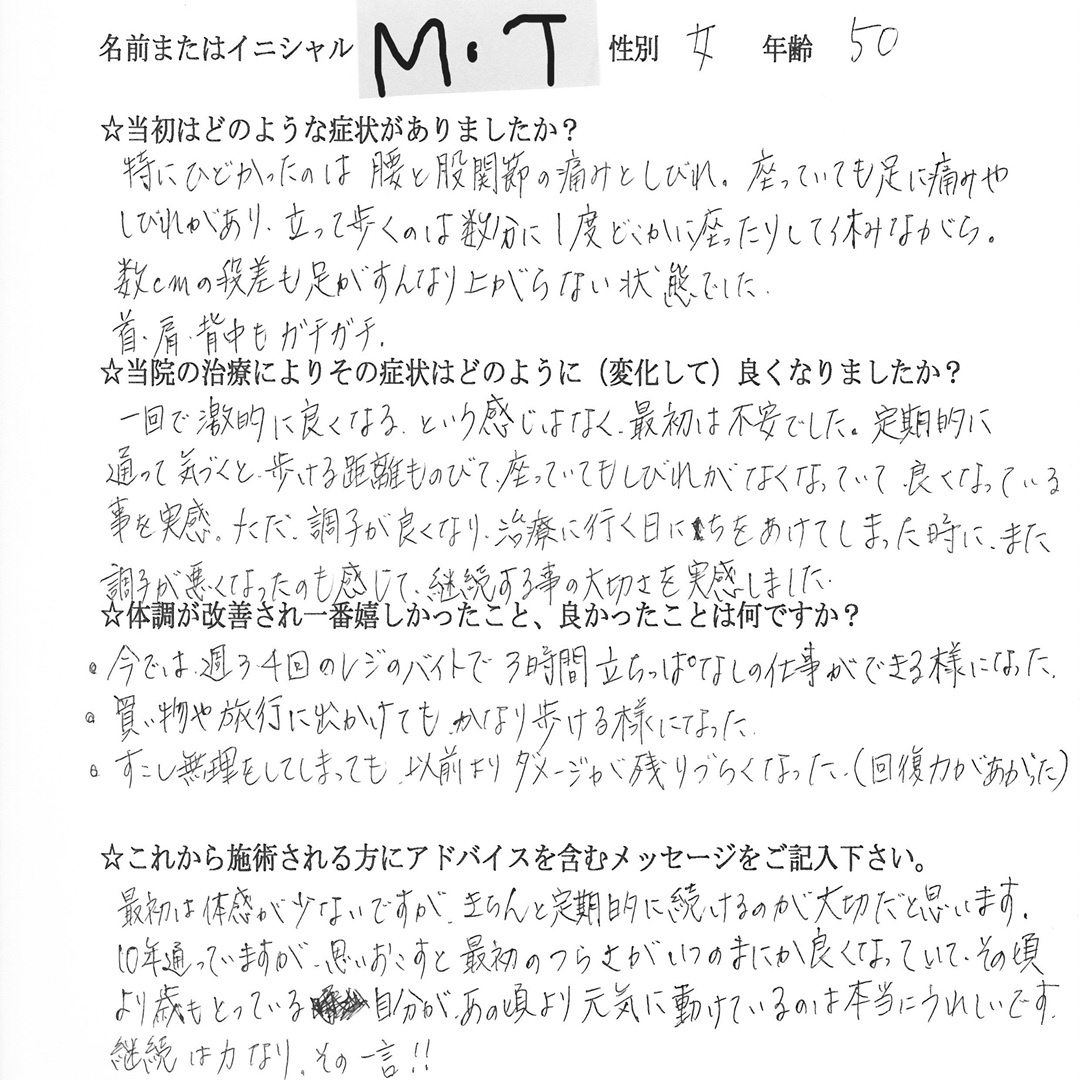 名前またはイニシャル M・T 性別 女 年齢 50
☆当初はどのような症状がありましたか？
特にひどかったのは腰と股関節の痛みとしびれ。座っていても足に痛みや
しびれがあり、立って歩くのは数分に1度どこかに座ったりして休みながら。
数cmの段差も足がすんなり上がらない状態でした。
首・肩・背中もガチガチ。
☆当院の治療によりその症状はどのように（変化して）良くなりましたか？
一回で激的に良くなる、という感じはなく、最初は不安でした。定期的に
通って気づくと、歩ける距離ものびて、座っていてもしびれがなくなっていて、良くなっている
事を実感。ただ、調子が良くなり、治療に行く日にちをあけてしまった時に、また
調子が悪くなったのも感じて、継続する事の大切さを実感しました。
☆体調が改善され一番嬉しかったこと、良かったことは何ですか？
◦今では、週3 4回のレジのバイトで3時間立ちっぱなしの仕事ができる様になった。
◦買い物や旅行に出かけてもかなり歩ける様になった。
◦すこし無理をしてしまっても、以前よりダメージが残りづらくなった。(回復力があがった)
☆これから施術される方にアドバイスを含むメッセージをご記入下さい。
最初は体感が少ないですが、きちんと定期的に続けるのが大切だと思います。
10年通っていますが、思いおこすと最初のつらさがいつのまにか良くなっていて、その頃
より歳もとっている自分が、あの頃より元気に動けているのは本当にうれしいです。
継続は力なり。その一言!!